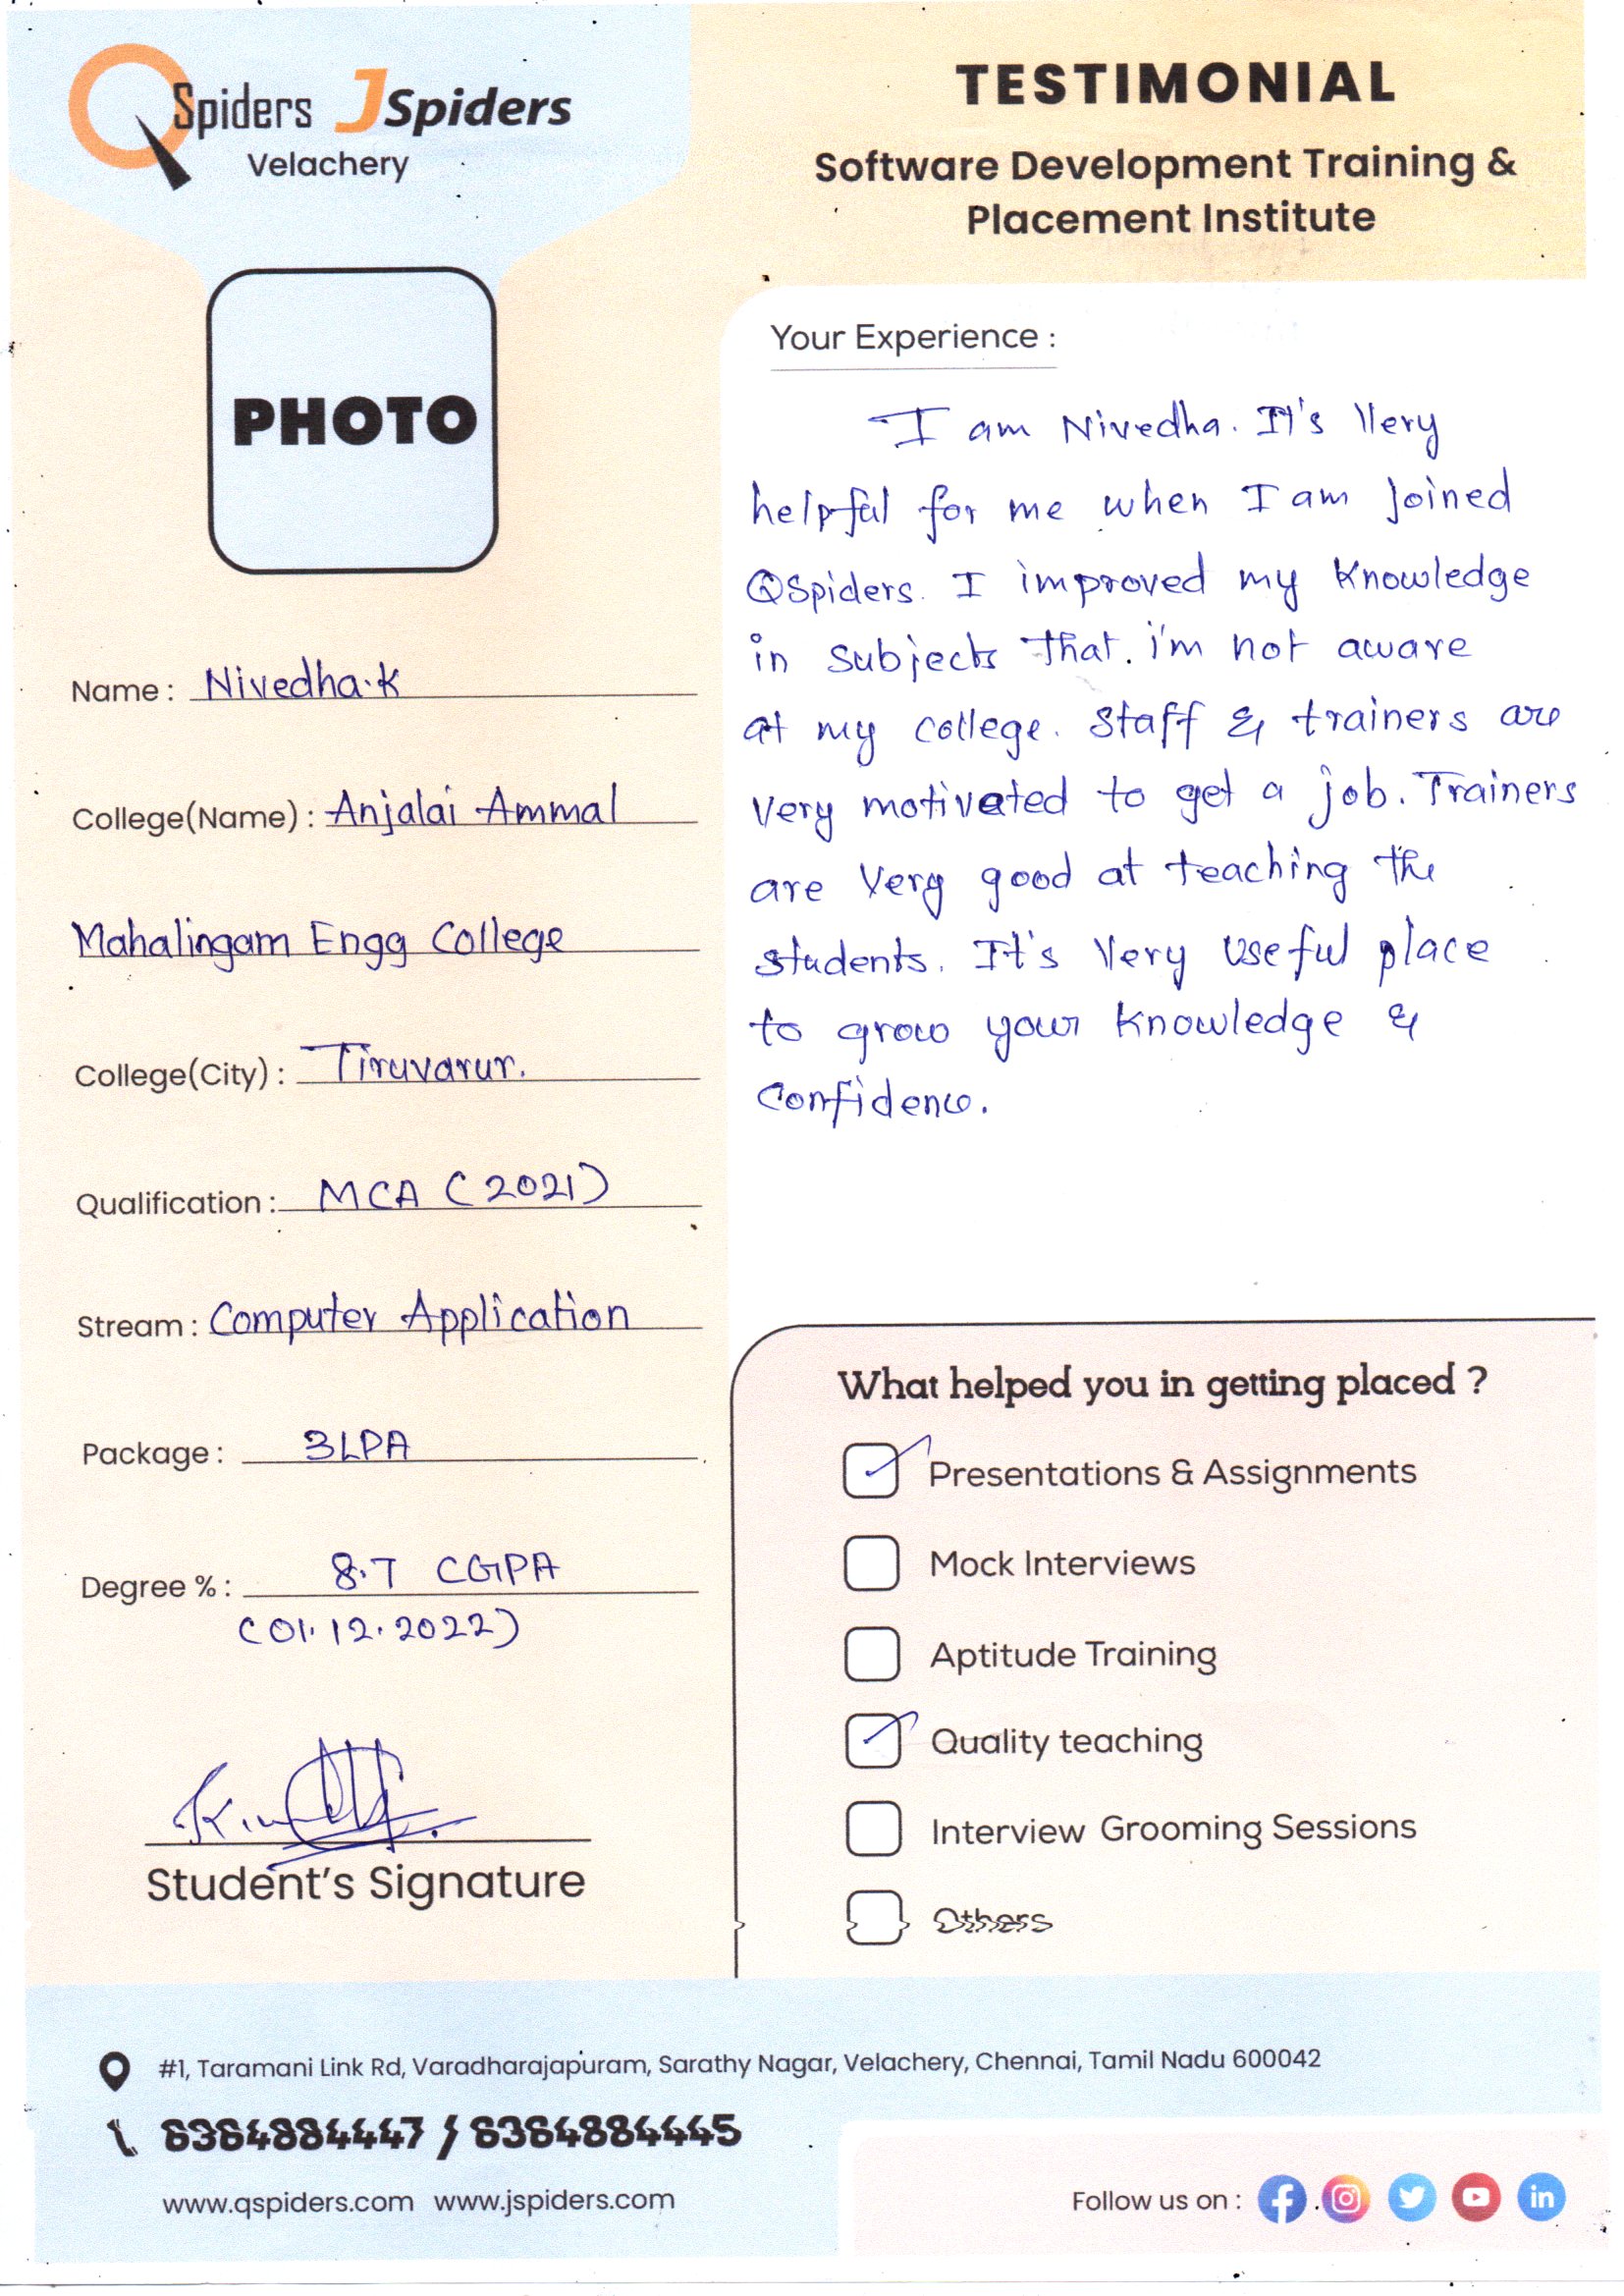 QSpiders JSpiders
Velachery
TESTIMONIAL
Software Development Training &
Placement Institute
PHOTO
Name : Nivedha.K
College(Name) : Anjalai Ammal
Mahalingam Engg College
College(City) : Tiruvarur.
Qualification : MCA (2021)
Stream : Computer Application
Package : 3LPA
Degree % : 8.7 CGPA
(01.12.2022)
Student's Signature
Your Experience :
I am Nivedha. It's Very
helpful for me when I am joined
QSpiders. I improved my Knowledge
in subjects that. i'm not aware
at my college. Staff & trainers are
very motivated to get a job. Trainers
are Very good at teaching the
students. It's Very useful place
to grow your Knowledge &
Confidence.
What helped you in getting placed ?
Presentations & Assignments
Mock Interviews
Aptitude Training
Quality teaching
Interview Grooming Sessions
Others
#1, Taramani Link Rd, Varadharajapuram, Sarathy Nagar, Velachery, Chennai, Tamil Nadu 600042
6364884447 / 6364884445
www.qspiders.com www.jspiders.com
Follow us on :